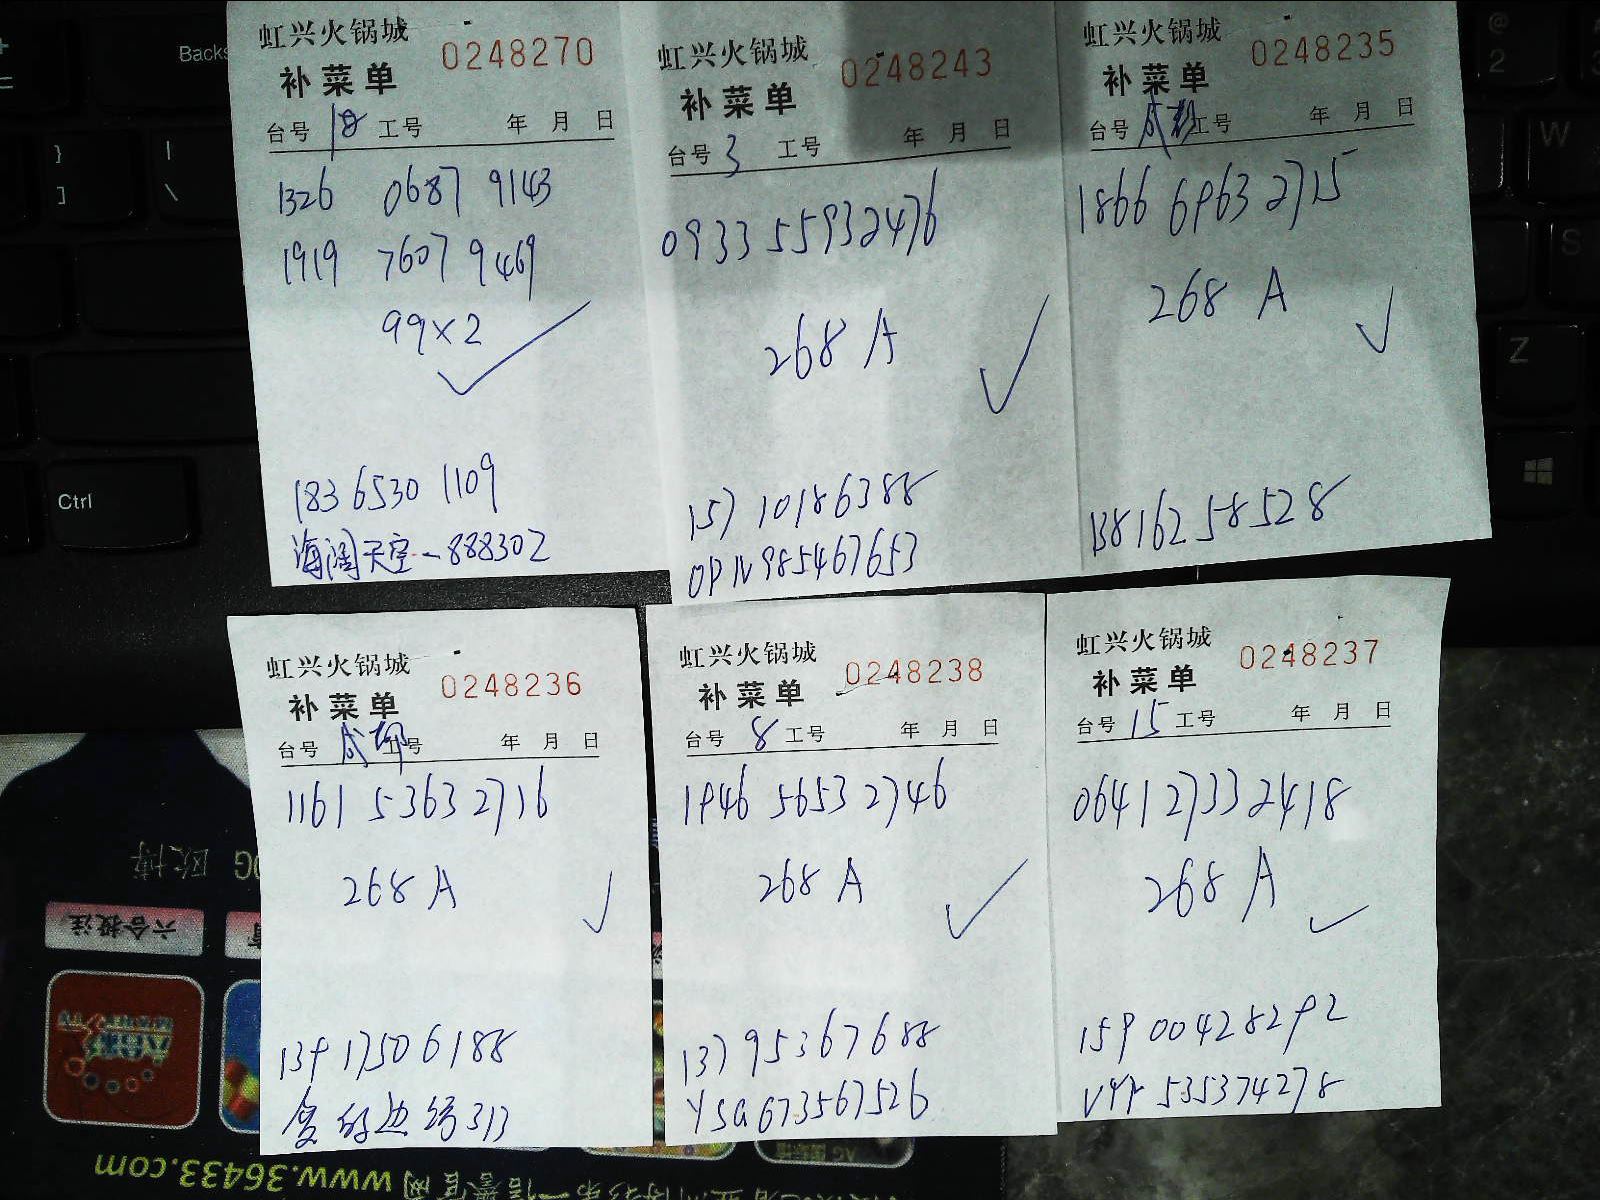 虹兴火锅城 0248270
补菜单
台号 18 工号 年 月 日
1326 0687 9143
1919 7607 9469
99×2
183 6530 1109
海阔天空-888302
虹兴火锅城 0248243
补菜单
台号 3 工号 年 月 日
0933 5593 2476
268 A
157 10186388
OPN985467653
虹兴火锅城 0248235
补菜单
台号 成都 工号 年 月 日
1866 6963 2715
268 A
138162 58528
虹兴火锅城 0248236
补菜单
台号 成都 工号 年 月 日
1161 5363 2716
268 A
139 17506188
313
虹兴火锅城 0248238
补菜单
台号 8 工号 年 月 日
1946 5653 2746
268 A
137 95367688
YSG673567526
虹兴火锅城 0248237
补菜单
台号 15 工号 年 月 日
0641 2733 2418
268 A
159 00428292
535374278
Backs
Ctrl
Z
W
S
@
2
欧博
六合投注
www.36433.com